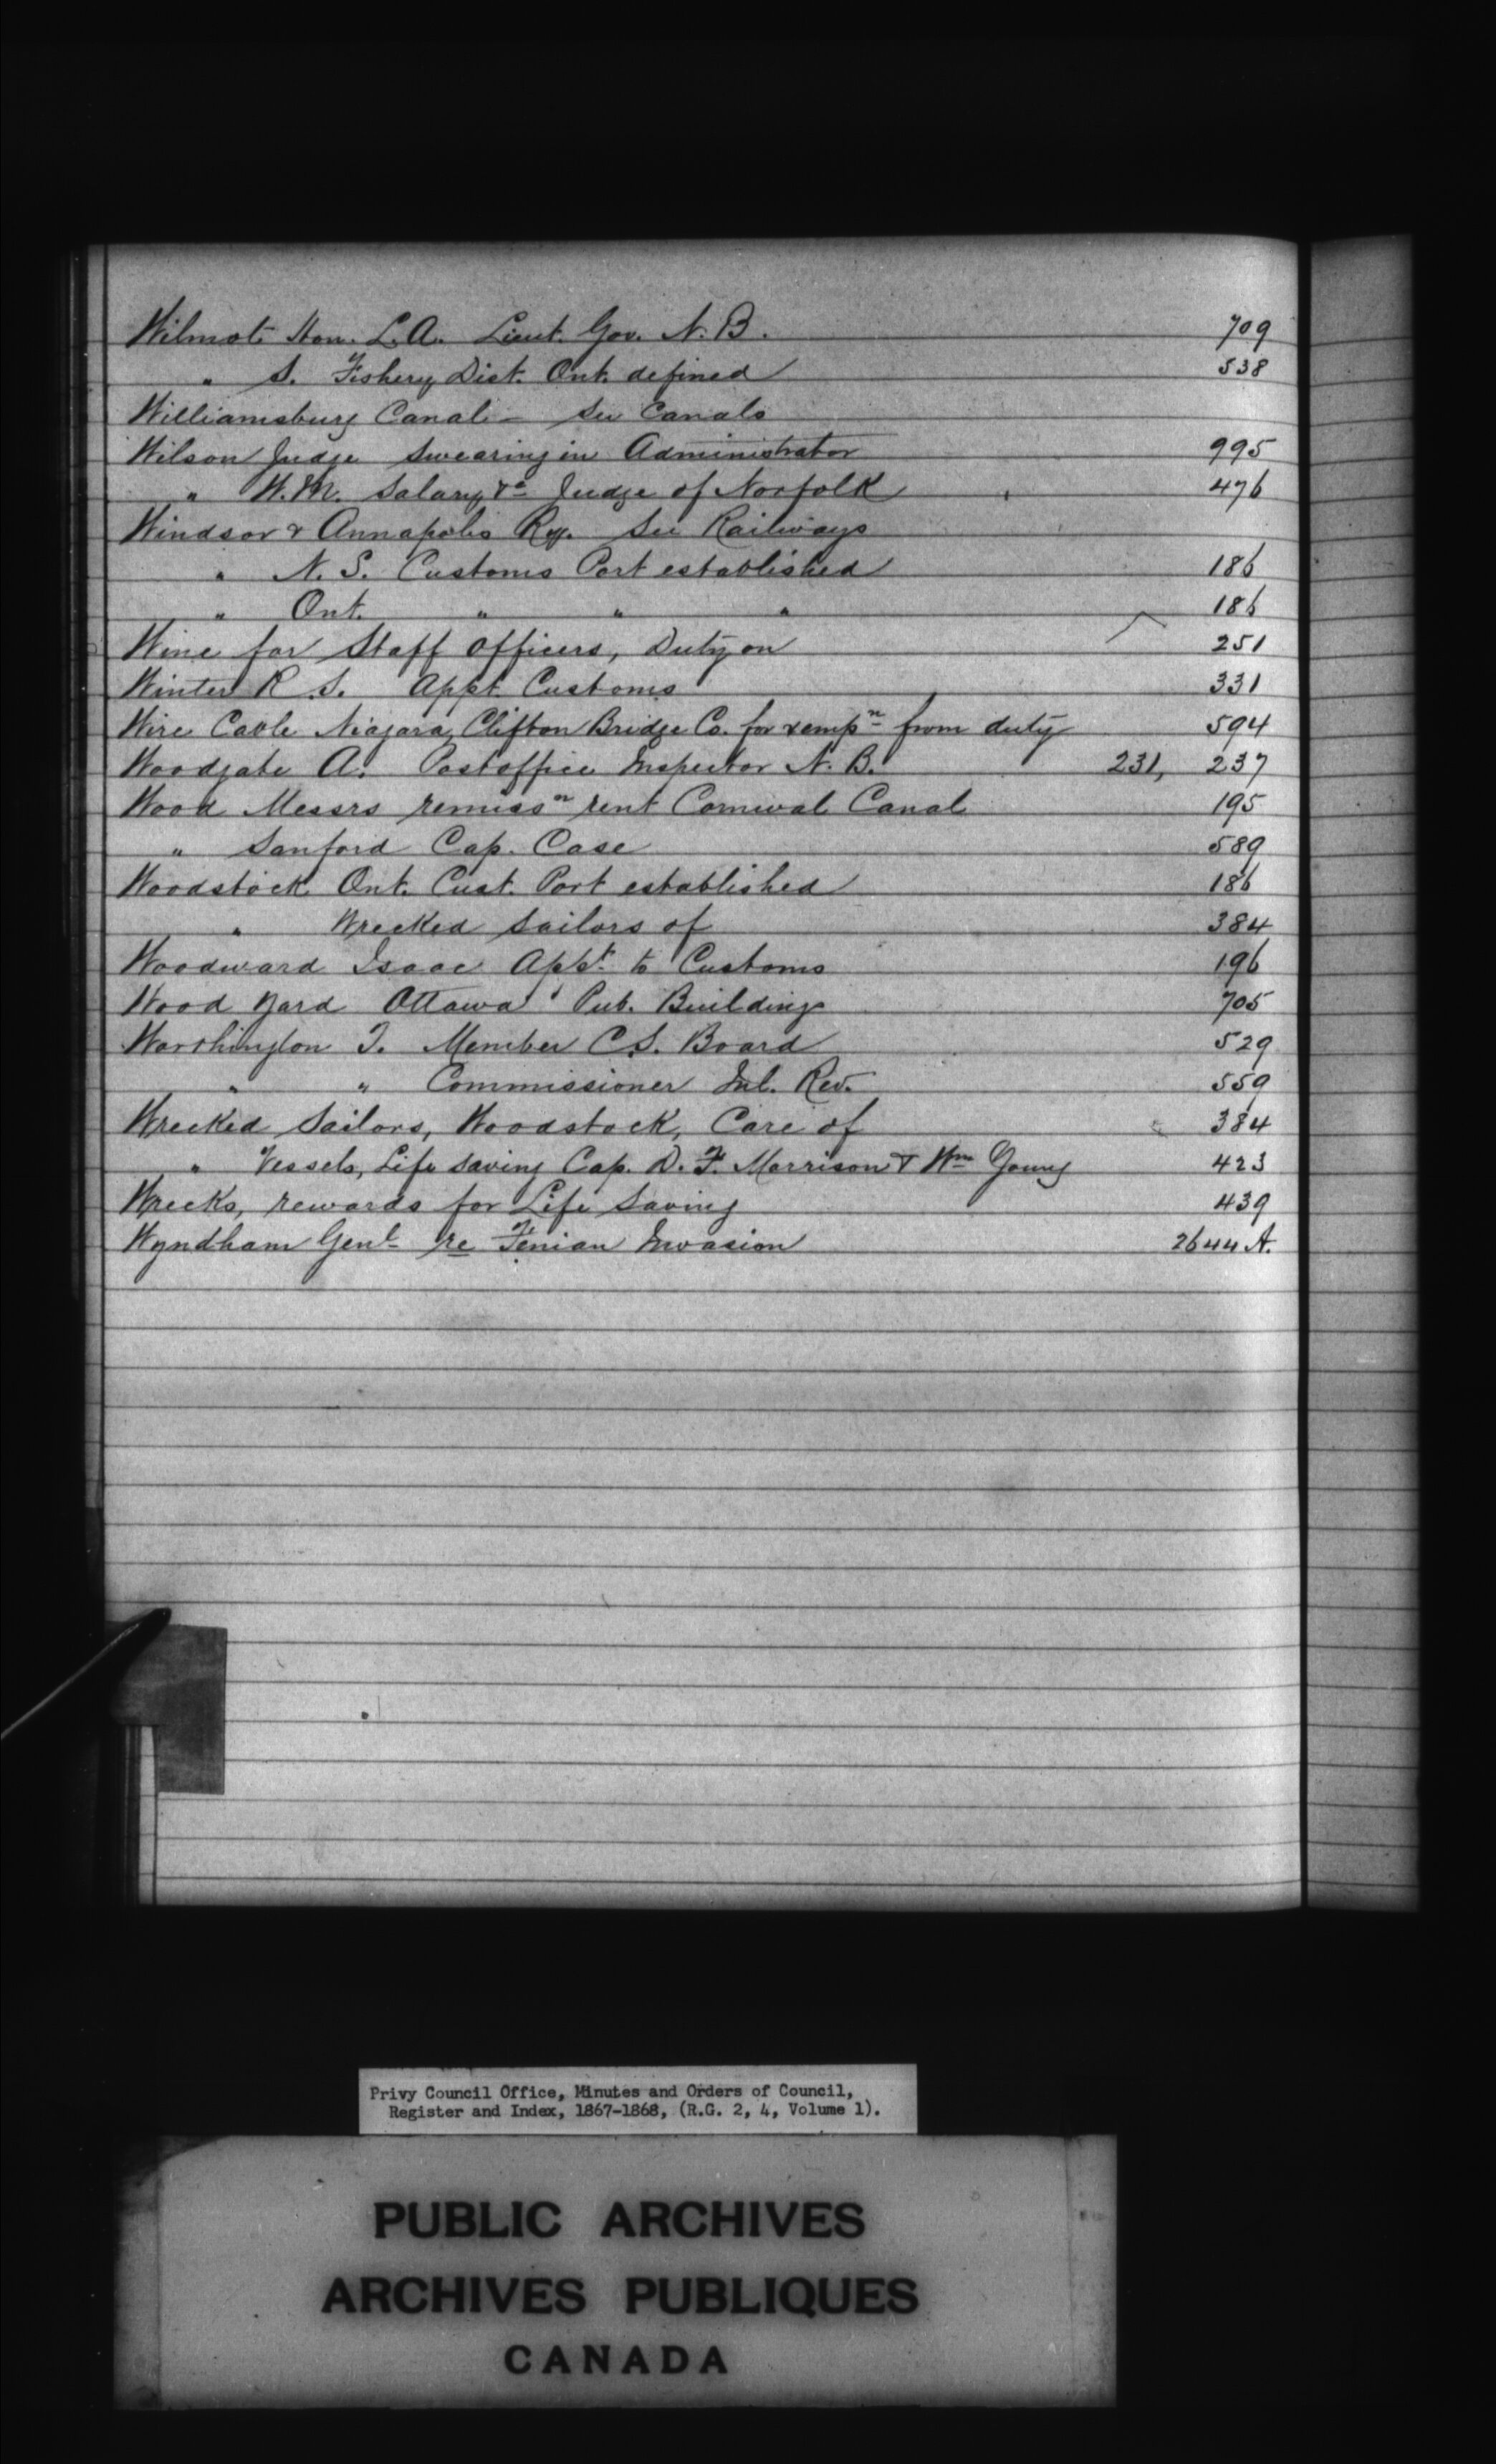 Wilmot Hon. L.A. Lieut. Gov. N.B. 709
" S. Fishery Dist. Ont. defined 538
Williamsburg Canal - See Canals
Wilson Judge Swearing in Administrator 995
" W.M. Salary &c Judge of Norfolk 476
Windsor & Annapolis Ry. See Railways
" N.S. Customs Port established 186
" Ont. " " " 186
Wine for Staff Officers, Duty on 251
Winter R.S. Appt Customs 331
Wire Cable Niagara, Clifton Bridge Co. for xempn from duty 594
Woodgate A. Postoffice Inspector N.B. 231, 237
Wood Messrs remissn rent Cornwal Canal 195
" Sanford Cap. Case 589
Woodstock Ont. Cust. Port established 186
" Wrecked Sailors of 384
Woodward Isaac Appt to Customs 196
Wood Yard Ottawa Pub. Buildings 705
Worthington T. Member C.S. Board 529
" " Commissioner Inl. Rev. 559
Wrecked Sailors, Woodstock, Care of 384
" Vessels, Life saving Cap. D.F. Morrison & Wm Young 423
Wrecks, rewards for Life Saving 439
Wyndham Genl re Fenian Invasion 2644 A.
Privy Council Office, Minutes and Orders of Council,
Register and Index, 1867-1868, (R.G. 2, 4, Volume 1).
PUBLIC ARCHIVES
ARCHIVES PUBLIQUES
CANADA